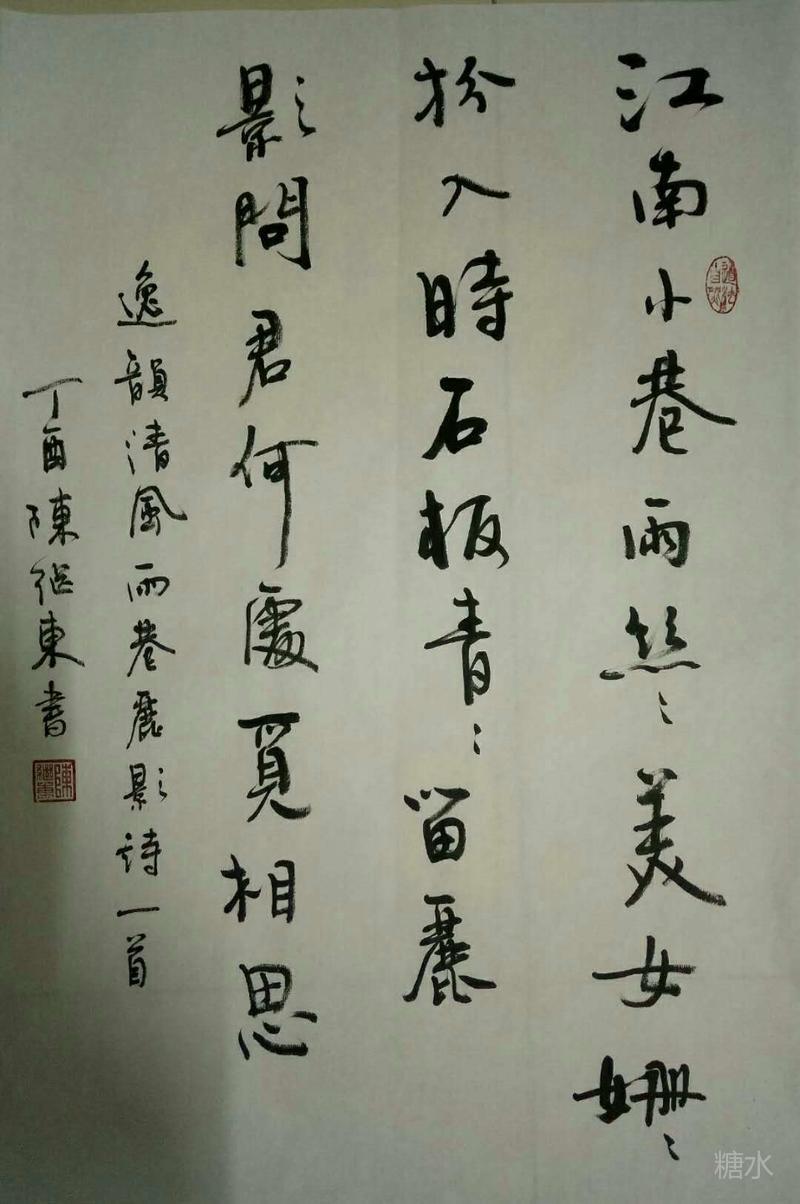 江南小巷雨丝〻美女姍〻
扮入時石板青〻留麗
影問君何處覓相思
逸韻清風雨巷麗影詩一首
丁酉陳继東書
糖水